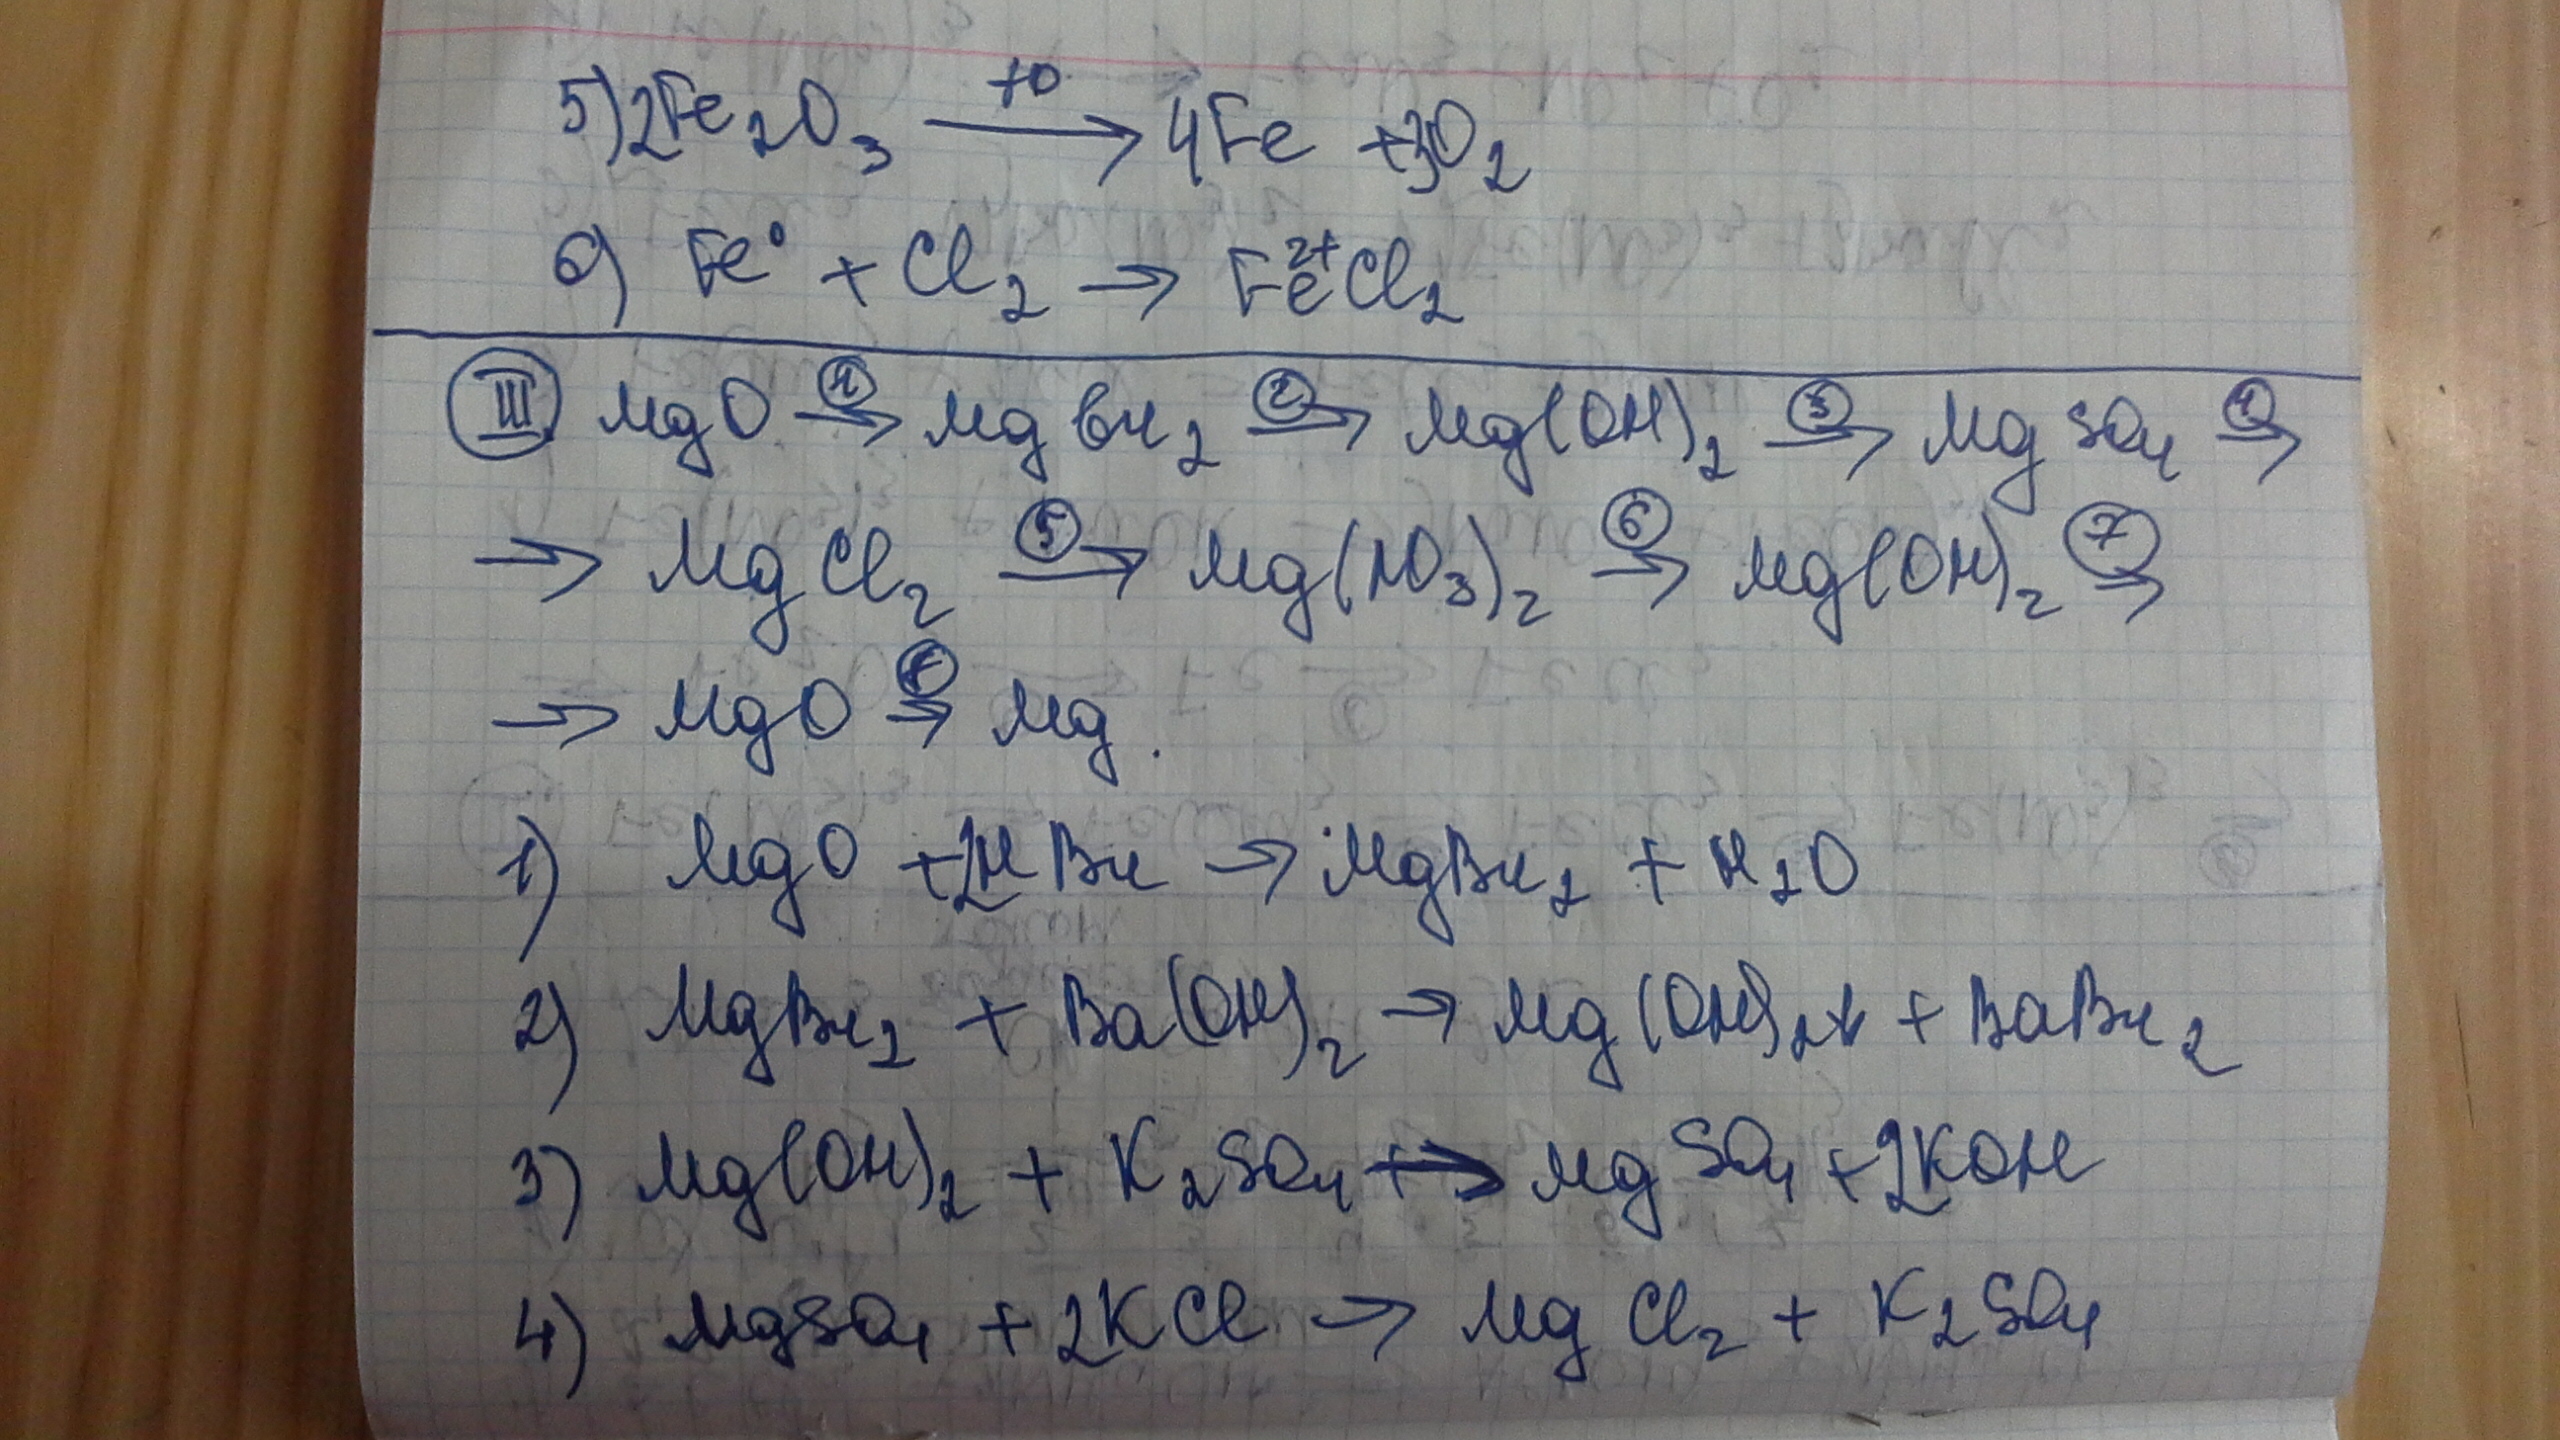 5) 2Fe₂O₃ —t°→ 4Fe + 3O₂
6) Fe⁰ + Cl₂ → Fe²⁺Cl₂
III. MgO ①→ MgBr₂ ②→ Mg(OH)₂ ③→ MgSO₄ ④→
→ MgCl₂ ⑤→ Mg(NO₃)₂ ⑥→ Mg(OH)₂ ⑦→
→ MgO ⑧→ Mg.
1) MgO + 2HBr → MgBr₂ + H₂O
2) MgBr₂ + Ba(OH)₂ → Mg(OH)₂↓ + BaBr₂
3) Mg(OH)₂ + K₂SO₄ → MgSO₄ + 2KOH
4) MgSO₄ + 2KCl → MgCl₂ + K₂SO₄